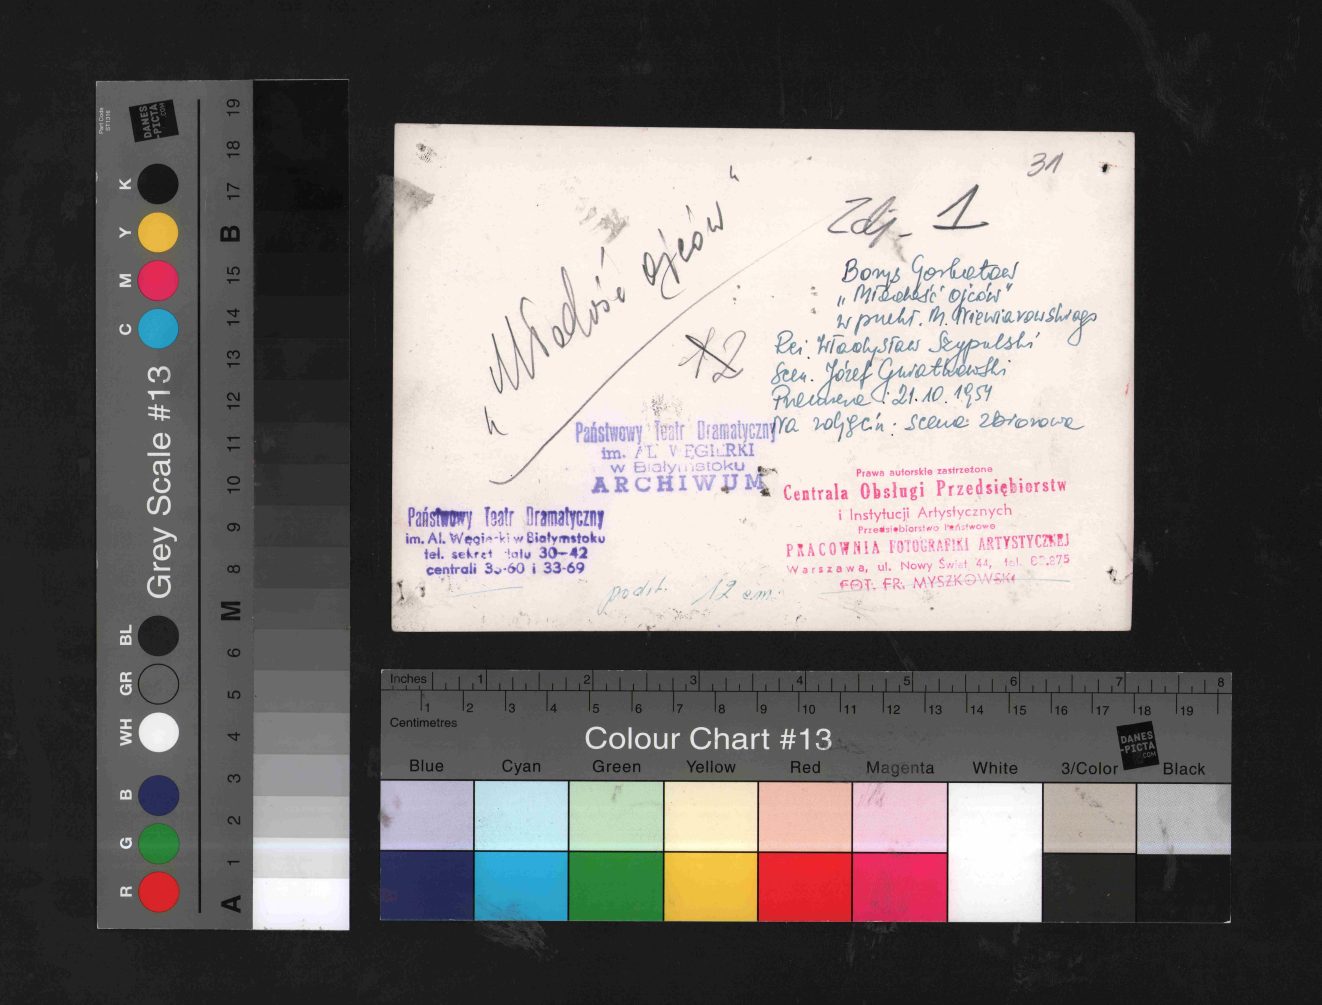 31
Zdj. 1
"Młodość ojców"
Borys Gorbatow
"Młodość ojców"
w przekł. M. Niewiarowskiego
Reż. Władysław Szypulski
Scen. Józef Gwiatkowski
Premiera: 21.10.1954
Na zdjęciu: scena zbiorowa
12
Państwowy Teatr Dramatyczny
im. AL. WĘGIERKI
w Białymstoku
ARCHIWUM
Państwowy Teatr Dramatyczny
im. Al. Węgierki w Białymstoku
tel. sekret 30-42
centrali 33-69
Prawa autorskie zastrzeżone
Centrala Obsługi Przedsiębiorstw
i Instytucji Artystycznych
Przedsiębiorstwo Państwowe
PRACOWNIA FOTOGRAFIKI ARTYSTYCZNEJ
Warszawa, ul. Nowy Świat 44, tel.
FOT. FR. MYSZKOWSKI
12 cm.
Part Code
ST1316
DANES
-PICTA
.COM
Grey Scale #13
K
Y
M
C
BL
GR
WH
B
G
R
19
18
17
B
15
14
13
12
11
10
9
8
M
6
5
4
3
2
1
A
Inches 1 2 3 4 5 6 7 8
1 2 3 4 5 6 7 8 9 10 11 12 13 14 15 16 17 18 19
Centimetres
Colour Chart #13
DANES
-PICTA
.COM
Blue Cyan Green Yellow Red Magenta White 3/Color Black